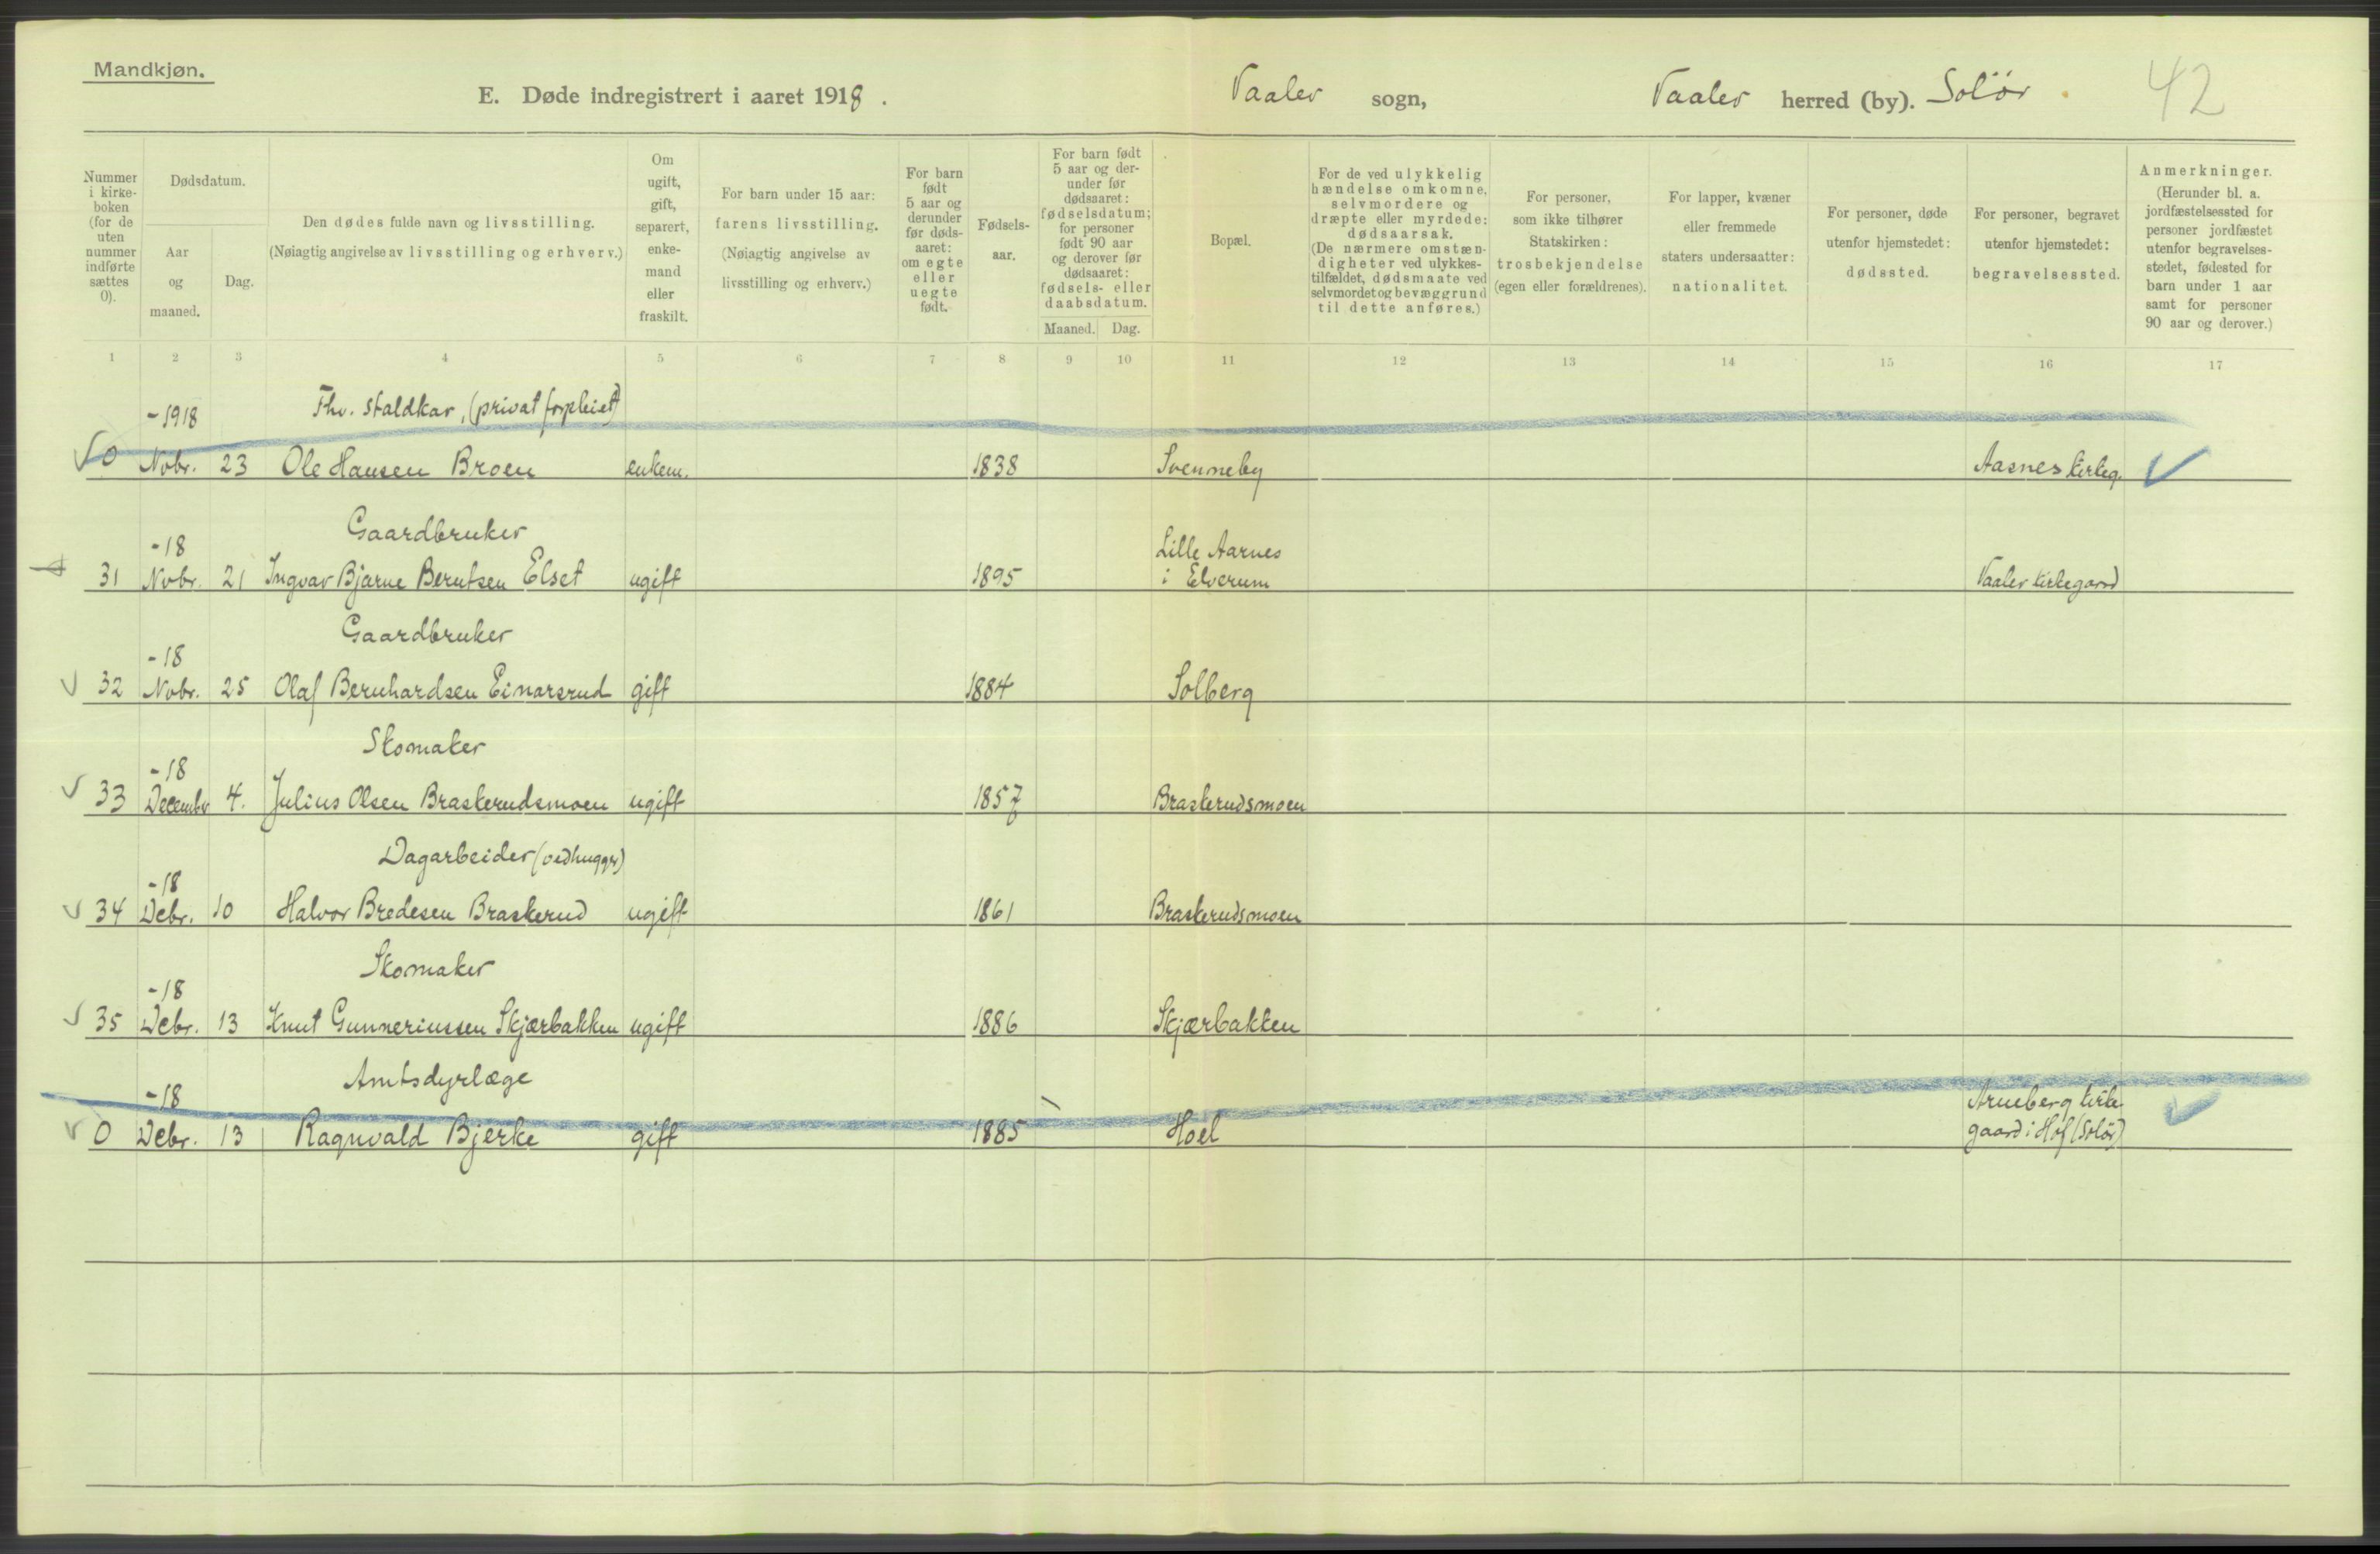 Mandkjøn.
E. Døde indregistrert i aaret 1918.
Vaaler sogn, Vaaler herred (by). Solör
42
Nummer
i kirke-
boken
(for de
uten
nummer
indførte
sættes
0).
Dødsdatum.
Aar
og
maaned.
Dag.
Den dødes fulde navn og livsstilling.
(Nøiagtig angivelse av livsstilling og erhverv.)
Om
ugift,
gift,
separert,
enke-
mand
eller
fraskilt.
For barn under 15 aar:
farens livsstilling.
(Nøiagtig angivelse av
livsstilling og erhverv.)
For barn
født
5 aar og
derunder
før døds-
aaret:
om egte
eller
uegte
født.
Fødsels-
aar.
For barn født
5 aar og der-
under før
dødsaaret:
fødselsdatum;
for personer
født 90 aar
og derover før
dødsaaret:
fødsels- eller
daabsdatum.
Maaned. Dag.
Bopæl.
For de ved ulykkelig
hændelse omkomne,
selvmordere og
dræpte eller myrdede:
dødsaarsak.
(De nærmere omstæn-
digheter ved ulykkes-
tilfældet, dødsmaate ved
selvmordet og bevæggrund
til dette anføres.)
For personer,
som ikke tilhører
Statskirken:
trosbekjendelse
(egen eller forældrenes).
For lapper, kvæner
eller fremmede
staters undersaatter:
nationalitet.
For personer, døde
utenfor hjemstedet:
dødssted.
For personer, begravet
utenfor hjemstedet:
begravelsessted.
Anmerkninger.
(Herunder bl. a.
jordfæstelsessted for
personer jordfæstet
utenfor begravelses-
stedet, fødested for
barn under 1 aar
samt for personer
90 aar og derover.)
1 2 3 4 5 6 7 8 9 10 11 12 13 14 15 16 17
-1918 Fhv. staldkar, (privat forpleiet)
0 Nobr. 23 Ole Hansen Broen enkem. 1838 Svenneby Aasnes kirkeg.
-18 Gaardbruker Lille Aarnes
31 Nobr. 21 Ingvar Bjarne Berntsen Elset ugift 1895 i Elverum Vaaler kirkegard
-18 Gaardbruker
32 Nobr. 25 Olaf Bernhardsen Einarsrud gift 1884 Solberg
-18 Skomaker
33 Decembr 4. Julius Olsen Braskerudsmoen ugift 1857 Braskerudsmoen
-18 Dagarbeider (vedhugger)
34 Debr. 10 Halvor Bredesen Braskerud ugift 1861 Braskerudsmoen
-18 Skomaker
35 Debr. 13 Knut Gunneriussen Skjærbakken ugift 1886 Skjærbakken
-18 Amtsdyrlæge Arneberg kirke-
0 Debr. 13 Ragnvald Bjerke gift 1885 Hoel gaard i Hof (Solör)